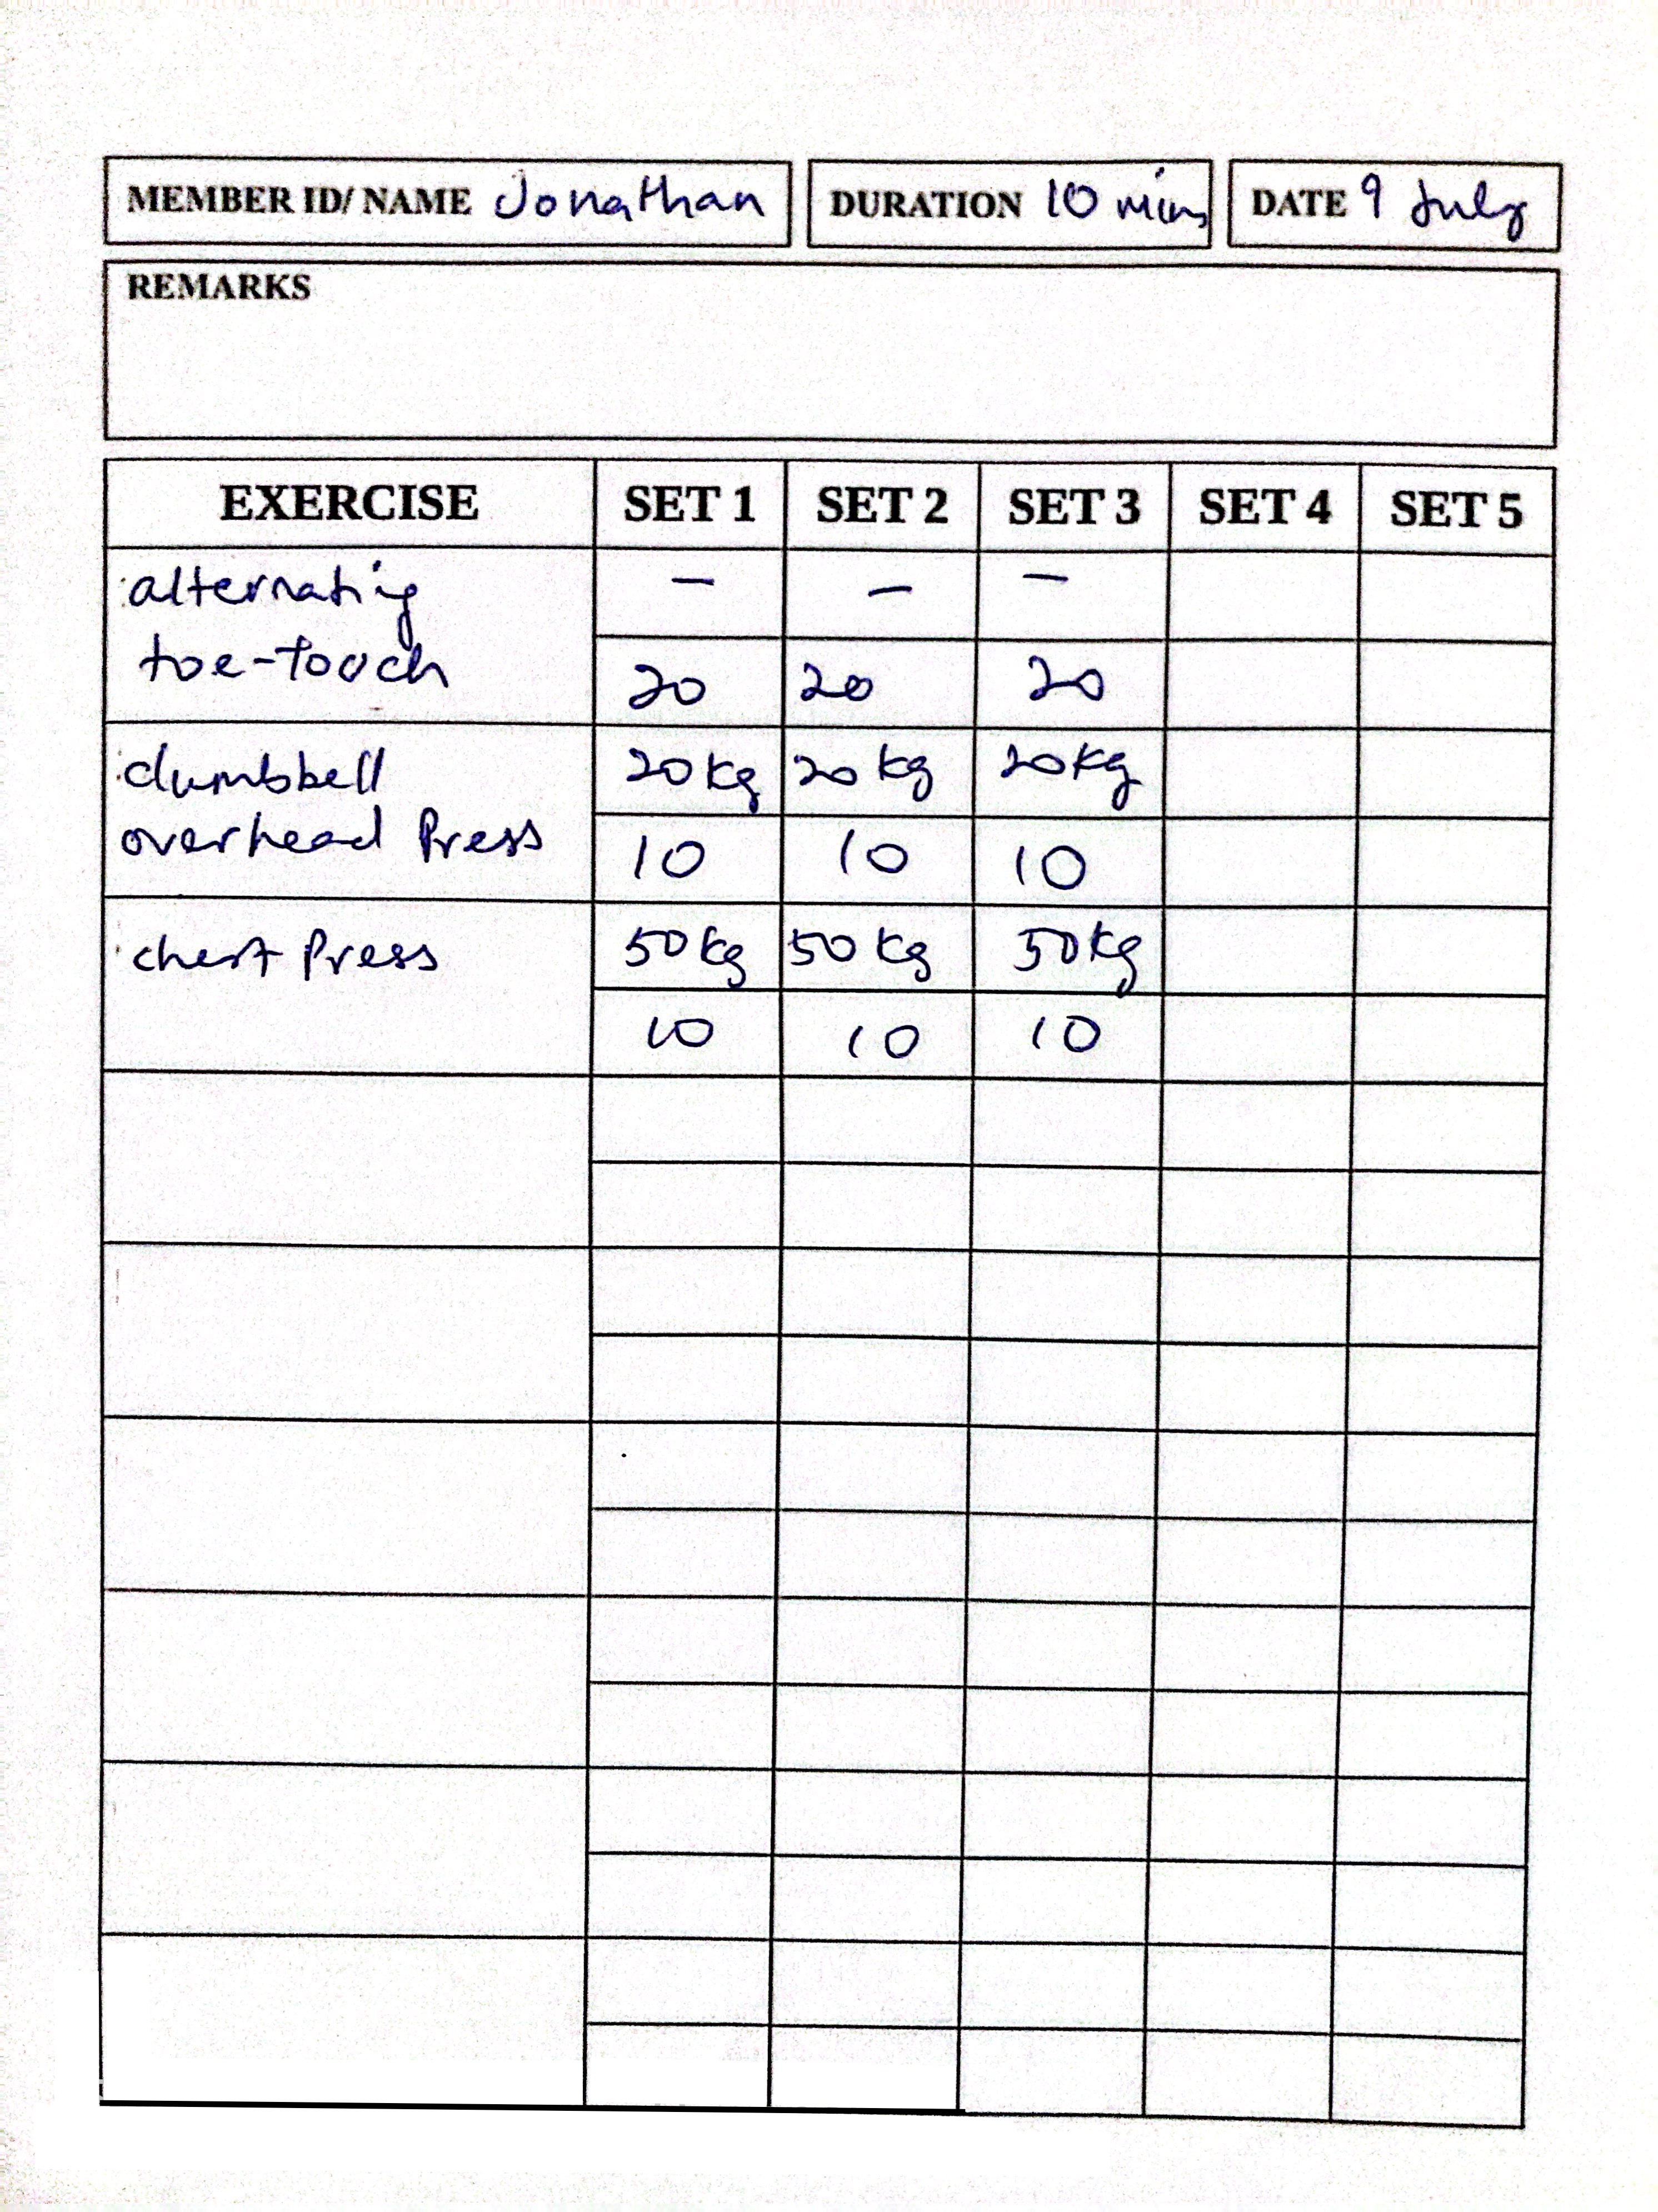 MEMBER ID/ NAME Jonathan DURATION 10 mins DATE 9 July
REMARKS
EXERCISE SET 1 SET 2 SET 3 SET 4 SET 5
alternating — — —
toe-touch 20 20 20
dumbbell 20kg 20kg 20kg
overhead Press 10 10 10
chest Press 50kg 50kg 50kg
10 10 10